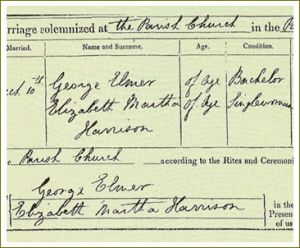 rriage solemnized at the Parish Church in the
Married. Name and Surname. Age. Condition.
10th George Elmer of age Bachelor
Elizabeth Martha Harrison of Age Singlewoman
Parish Church according to the Rites and Ceremoni
George Elmer
Elizabeth Martha Harrison
in the
Presen
of us